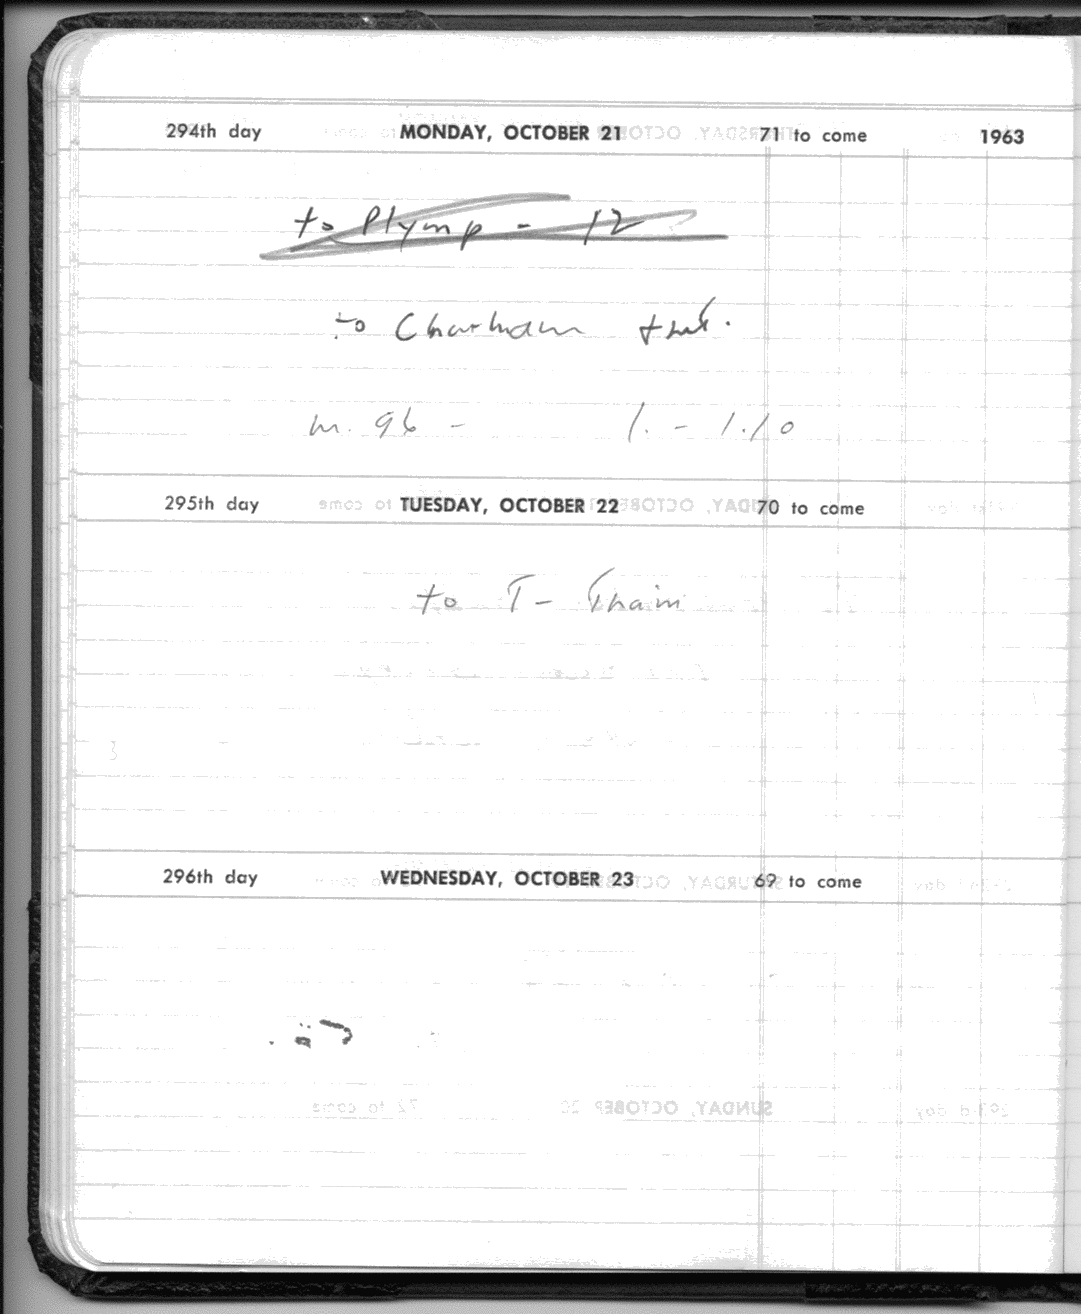 294th day MONDAY, OCTOBER 21 71 to come 1963
to Plymp - 12
to Charham
m. 96 - 1. - 1.10
295th day TUESDAY, OCTOBER 22 70 to come
to T- Thain
296th day WEDNESDAY, OCTOBER 23 69 to come
SUNDAY, OCTOBER 20 72 to come